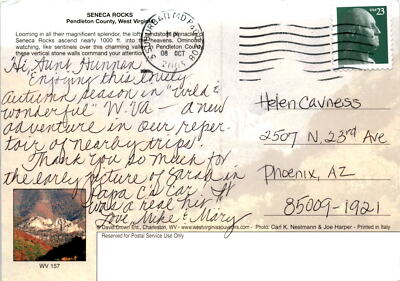 SENECA ROCKS
Pendleton County, West Virginia
Looming in all their magnificent splendor, the lofty sandstone pinnacles
Seneca Rocks ascend nearly 1000 ft. into the heavens. Ominous
watching, like sentinels over this charming valley Pendleton County
these vertical stone walls command your attention.
08 OCT
USA 23
Hi Aunt Hunnan
"Enjoying this lovely
Autumn season in "Wild &
wonderful" W. VA - a new
adventure in our reper-
toir of nearby trips!
Thank you so much for
the early picture of Sarah in
Papa C's car. It
was a real hit"
Love Mike & Mary
Helen Cavness
2507 N. 23rd Ave
Phoenix, AZ
85009-1921
WV 157
© David Drown Ent., Charleston, WV - www.westvirginiasouvenirs.com - Photo: Carl K. Nestmann & Joe Harper - Printed in Italy
Reserved for Postal Service Use Only